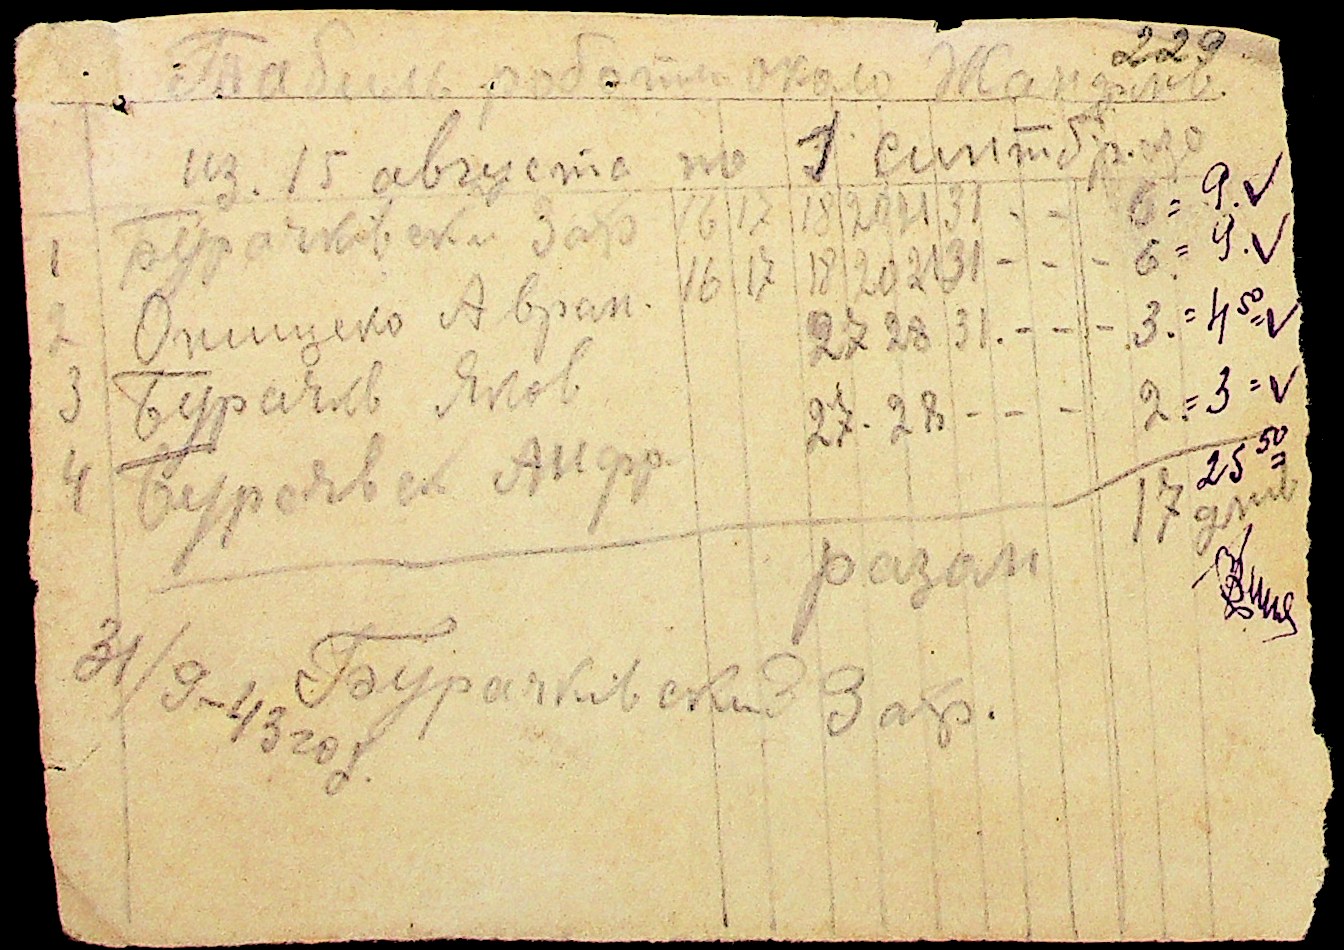 229
Табиль роботи около Жандрмв.
из. 15 августа по 1 синтбр.
1 Бурачківски Заф 16 17 18 20 21 31 - - 6 = 9. ✓
2 Онищеко Авран. 16 17 18 20 21 31 - - - 6. = 9. ✓
3 Бурачкв Яков 27 28 31. - - - 3. = 4 50 = ✓
4 Бурачвск Андр. 27. 28 - - - 2. = 3 = ✓
25 50 =
разам 17 днів
31/9-43 год.
Бурачківский Заф.